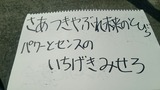 さあつきやぶれ未来のとびら
パワーとセンスの
いちげきみせろ